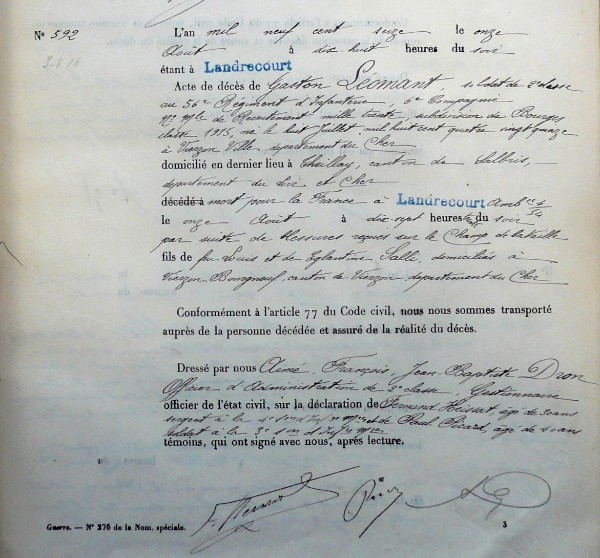 N° 592
L'an mil neuf cent seize le onze
Août à dix huit heures du soir
étant à Landrecourt
Acte de décès de Gaston Léomant soldat de 2e classe
au 56e Régiment d'Infanterie, 6e Compagnie
N° Mle de Recrutement mille trente, subdivision de Bourges
classe 1915, né le huit Juillet mil huit cent quatre vingt quinze
à Vierzon Ville, département du Cher
domicilié en dernier lieu à Theillay, canton de Salbris,
département du Loir et Cher
décédé à mort pour la France à Landrecourt Amb ce 6/54
le onze Août à dix sept heures du soir
par suite de blessures reçues sur le Champ de bataille
fils de feu Louis et de Eglantine Salle, domiciliés à
Vierzon Bourgneuf, canton de Vierzon, département du Cher
Conformément à l'article 77 du Code civil, nous nous sommes transporté
auprès de la personne décédée et assuré de la réalité du décès.
Dressé par nous Aimé, François, Jean-Baptiste Dron
Officier d'Administration de 2e classe, Gestionnaire
officier de l'état civil, sur la déclaration de Fernand
sergent à la et de Paul Picard, âgé de
soldat à la
témoins, qui ont signé avec nous, après lecture.
Guerre. — N° 276 de la Nom. spéciale.
3